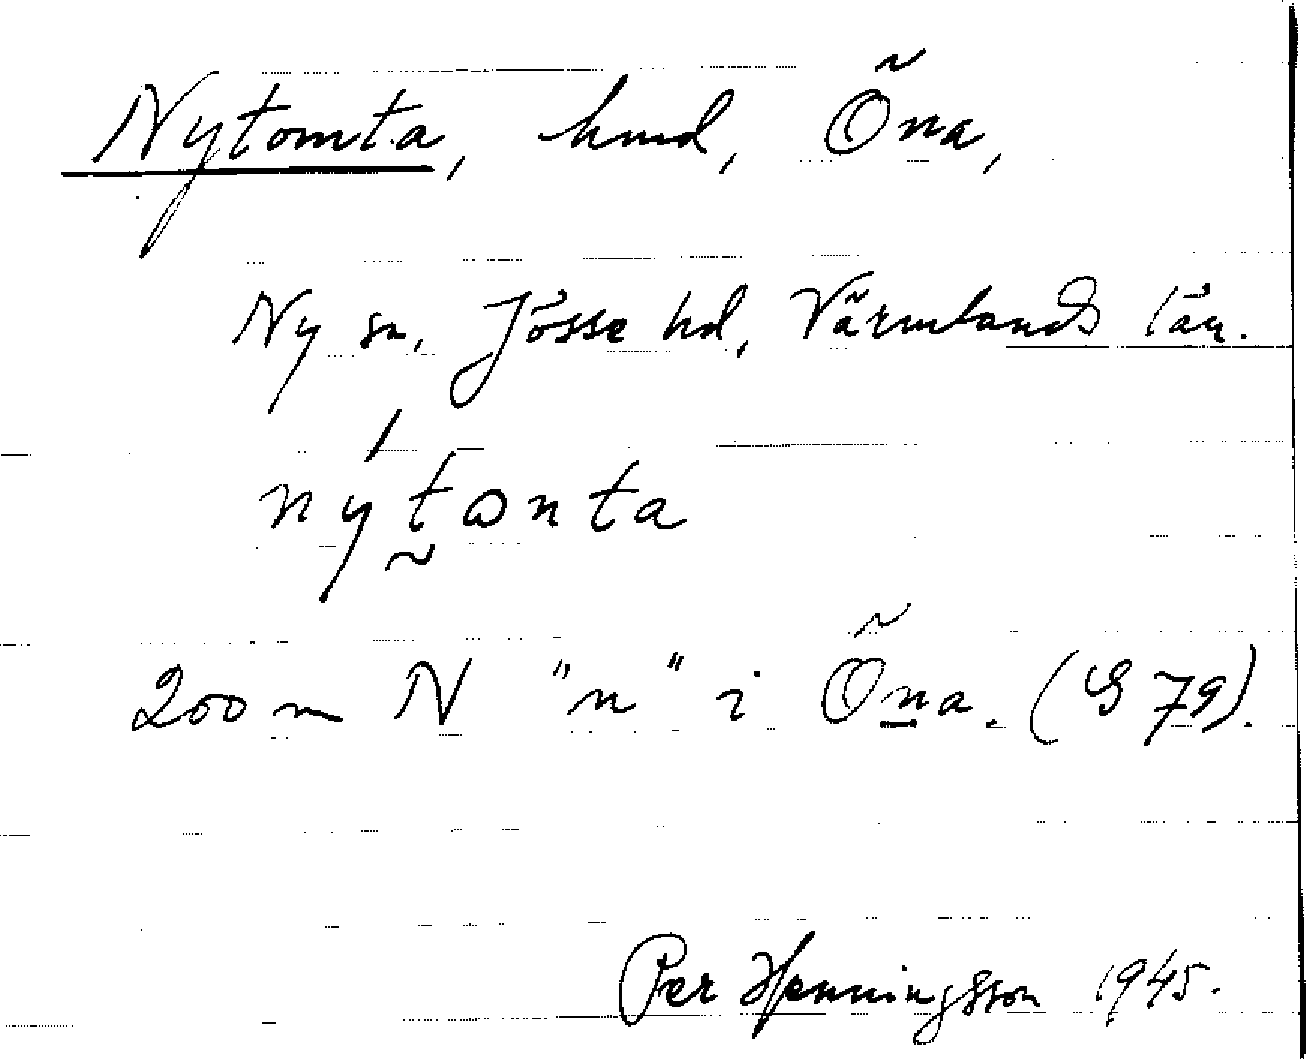 Nytomta, hmd, Öna,
Ny sn, Jösse hd, Värmlands län.
nýtonta
200 m N "n" i Öna. (S 79).
Per Henningsson 1945.